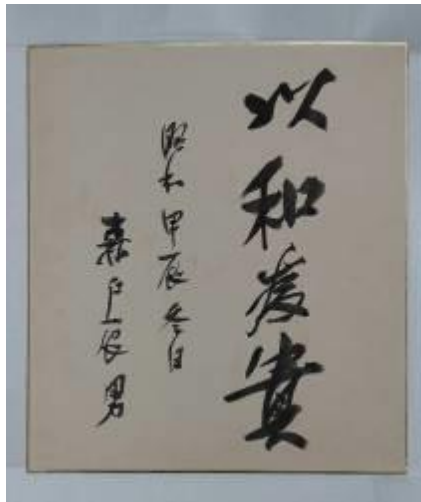 以和為貴
昭和甲辰冬日
森戸辰男